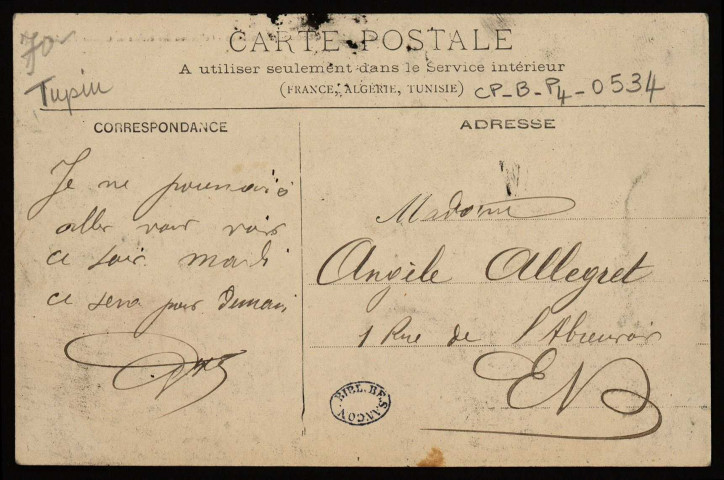 70
Tupin
CARTE POSTALE
A utiliser seulement dans le Service intérieur
(FRANCE, ALGÉRIE, TUNISIE)
CP-B-P4-0534
CORRESPONDANCE
Je ne pourrais
aller vous voir
ce soir mardi
ce sera pour demain
ADRESSE
Madame
Angèle Allegret
1 Rue de l'Abreuvoir
EV
BIBL. BESANÇON